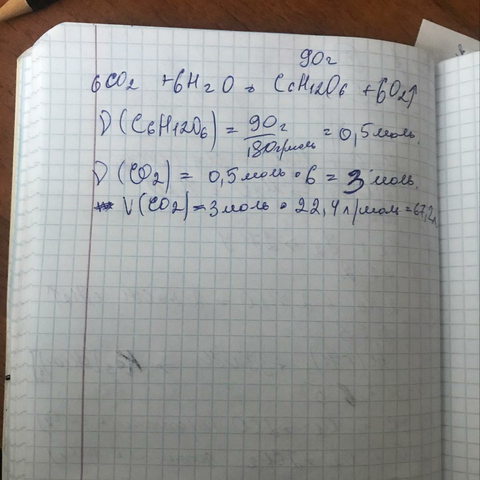 90г
6CO2 +6H2O → C6H12O6 +6O2↑
ν(C6H12O6) = 90г / 180г/моль = 0,5 моль.
ν(CO2) = 0,5 моль • 6 = 3 моль.
V(CO2) = 3 моль • 22,4 л/моль = 67,2л